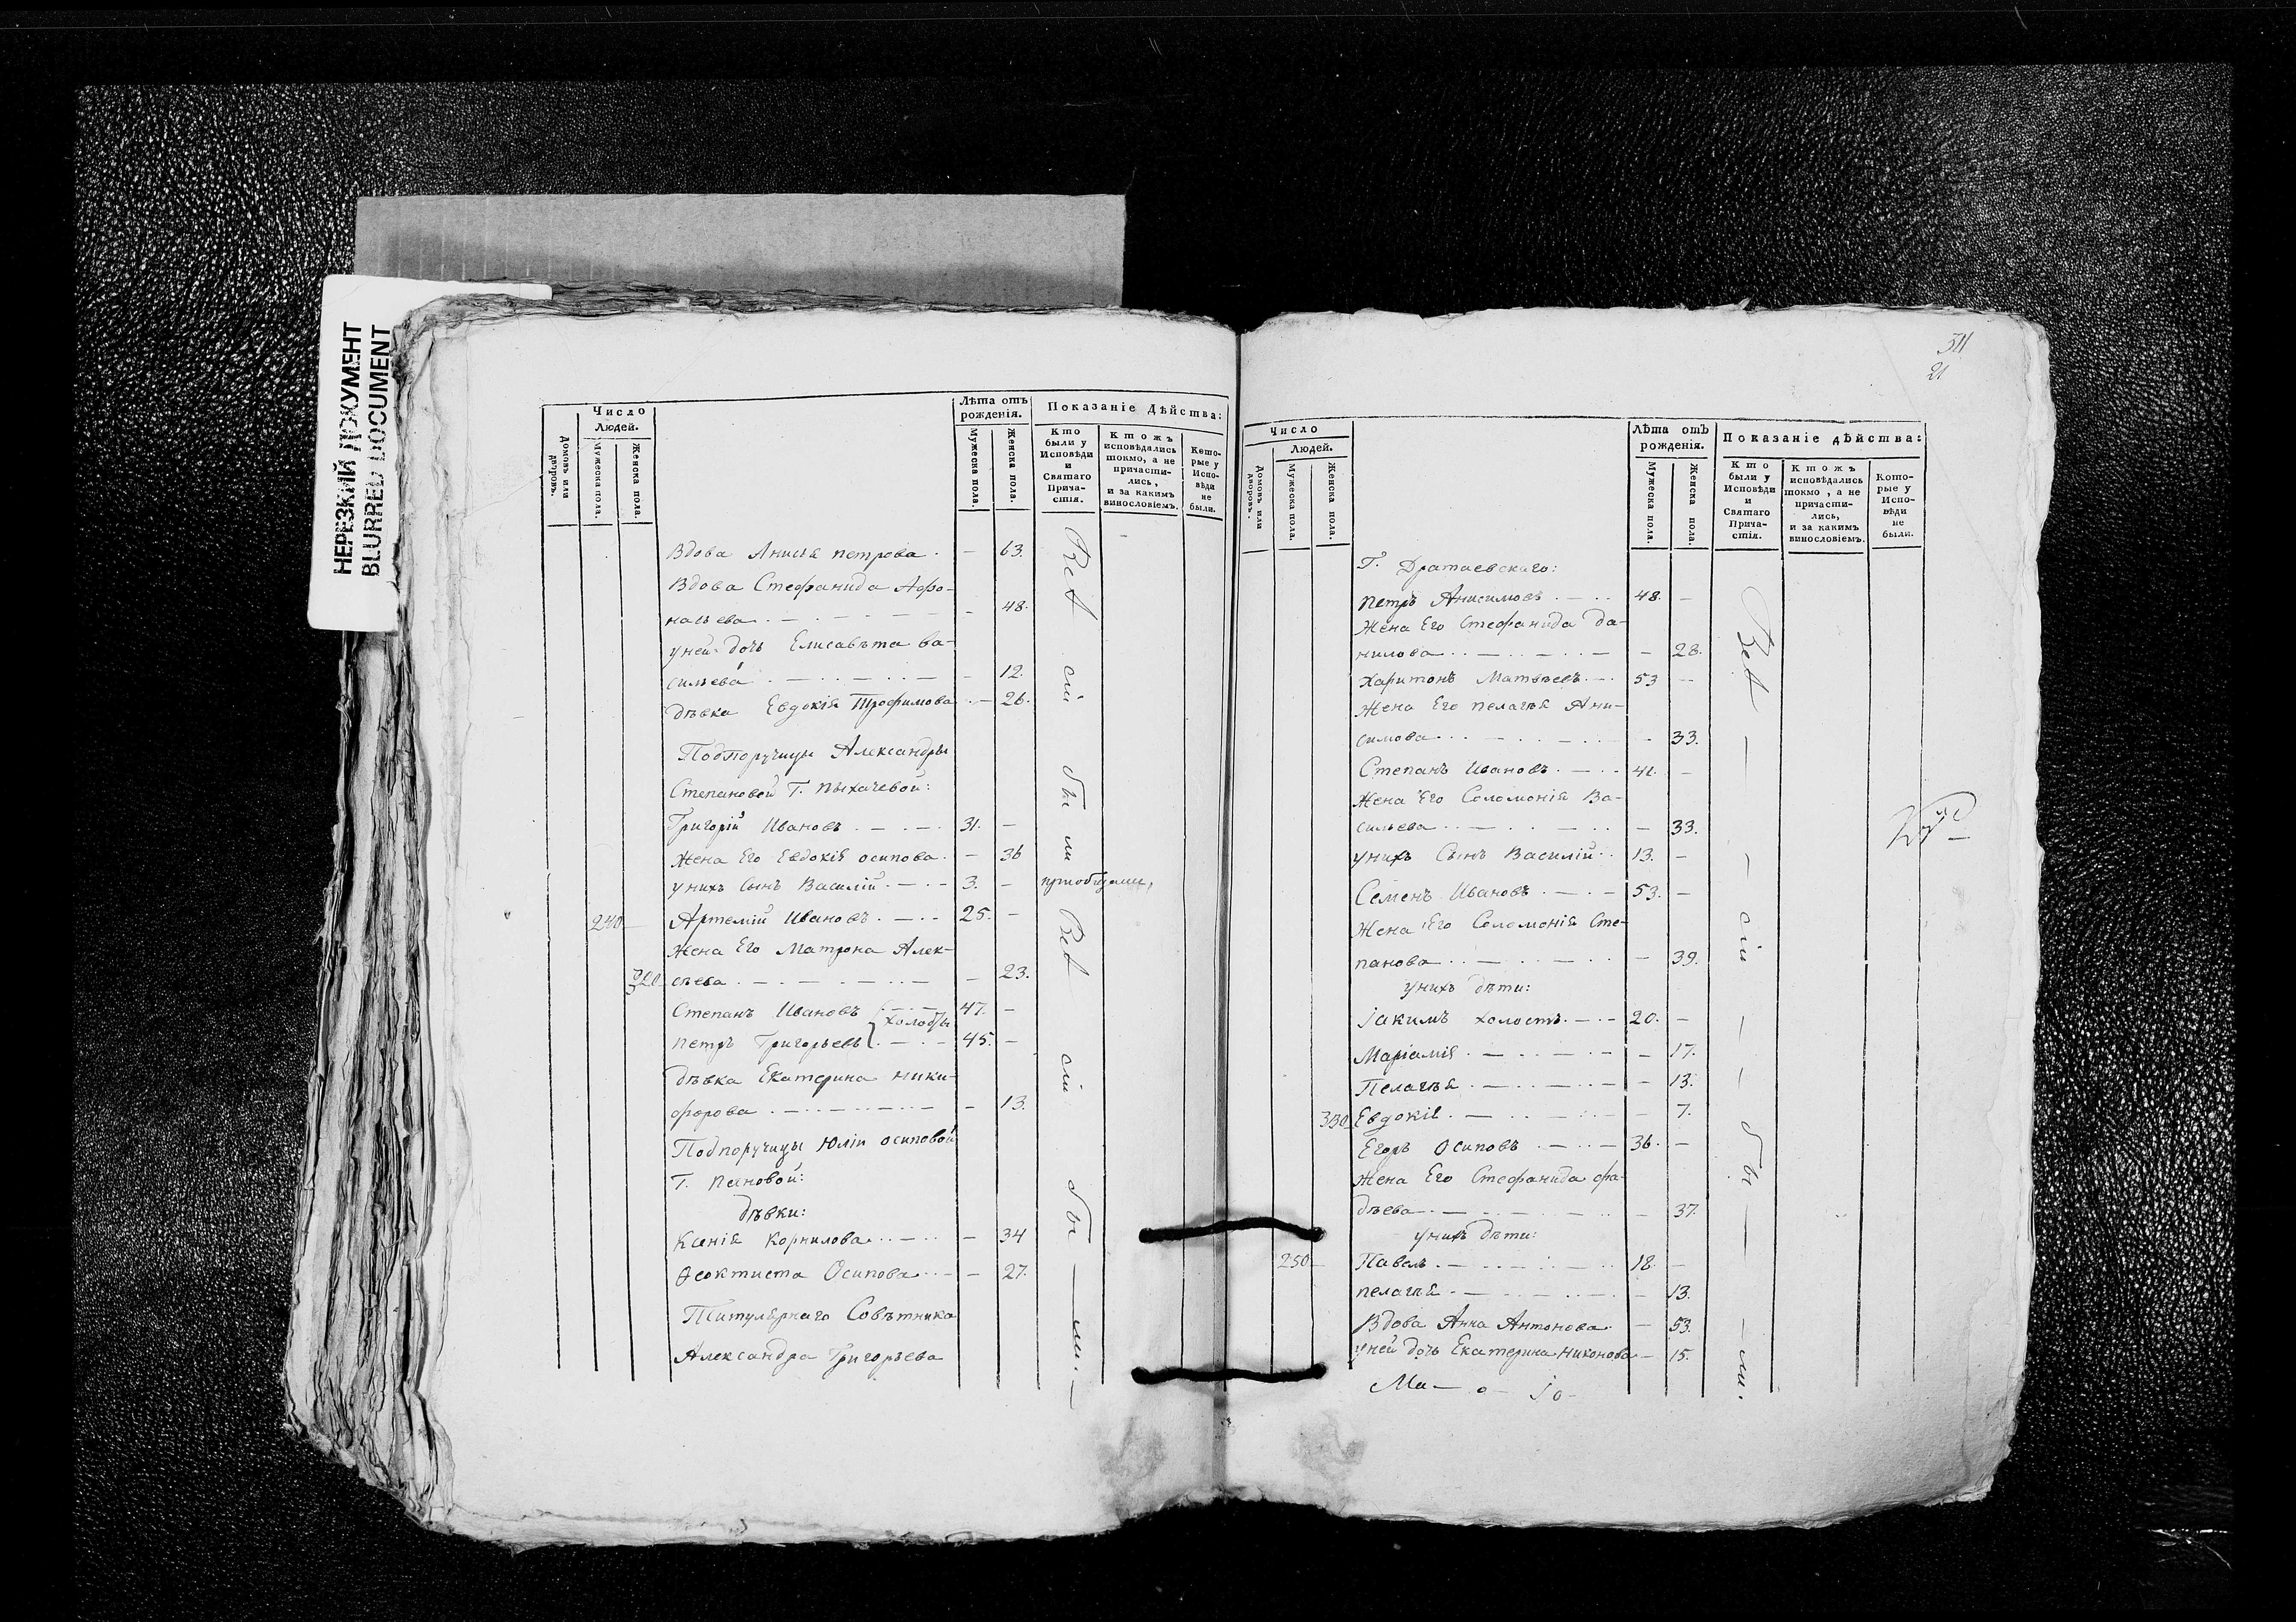 НЕРЕЗКИЙ ДОКУМЕНТ
BLURRED DOCUMENT
Число
Людей.
Домовъ или дворовъ.
Мужеска пола.
Женска пола.
Лѣта отъ рожденія.
Мужеска пола.
Женска пола.
Показаніе дѣйства:
Кто были у Исповѣди и Святаго Прича-стія.
Ктожъ исповѣдались токмо, а не причасти-лись, и за какимъ винословіемъ.
Кото-рые у Испо-вѣди не были.
Вдова Анисья петрова . — 63.
Вдова Стефанида Афо-
насьева . — . — 48.
уней дочь Елисавѣта ва-
сильева . — . — 12.
дѣвка Евдокія Трофимова . — 26.
Подпоручицы Александры
Степановой Г. Пыхачевой:
Григорій Ивановъ . — . 31. —
Жена Его Евдокія осипова . — 36
унихъ сынъ Василій . — . 3. — приобщены,
240 Артемій Ивановъ . — . 25. —
Жена Его Матрона Алек-
320 сѣева . — . — 23.
Степанъ Ивановъ — 47. —
холосты
петръ Григорьевъ . — 45. —
дѣвка Екатерина ники-
форова . — . — 13.
Подпоручицы Юліи осиповой
Г. Пановой:
дѣвки:
Ксенія Корнилова . — . — 34
Ѳеоктиста Осипова . — — 27.
Титулярнаго Совѣтника
Александра Григорьева
Всѣ
сіи
бы
ли
Всѣ
сіи
бы — ли. —
511
21
Число
Людей.
Домовъ или дворовъ.
Мужеска пола.
Женска пола.
Лѣта отъ рожденія.
Мужеска пола.
Женска пола.
Показаніе дѣйства:
Кто были у Исповѣди и Святаго Прича-стія.
Ктожъ исповѣдались токмо, а не причасти-лись, и за какимъ винословіемъ.
Кото-рые у Испо-вѣди не были.
Г. Дратаевскаго:
петръ Анисимовъ . — . 48. —
Жена Его Стефанида да-
нилова . — . — 28.
Харитонъ Матвѣевъ . — 53 —
Жена Его пелагѣя Ани-
симова . — . — 33.
Степанъ Ивановъ . — . 41. —
Жена Его Соломонія Ва-
сильева . — . — 33.
унихъ Сынъ Василій . 13. —
Семенъ Ивановъ . — . 53. —
Жена Его Соломонія Сте-
панова . — . — 39.
унихъ дѣти:
Іакимъ холостъ . — . 20. —
Маріамія . — . — 17.
Пелагѣя . — . — 13.
330 Евдокія . — . — 7.
Егоръ Осиповъ . — . 36. —
Жена Его Стефанида фа-
дѣева . — . — 37.
унихъ дѣти:
250 Павелъ . — . 18. —
пелагѣя . — . — 13.
Вдова Анна Антонова . — 53.
уней дочь Екатерина никонова — 15.
Всѣ — — сіи — — бы — — ли.